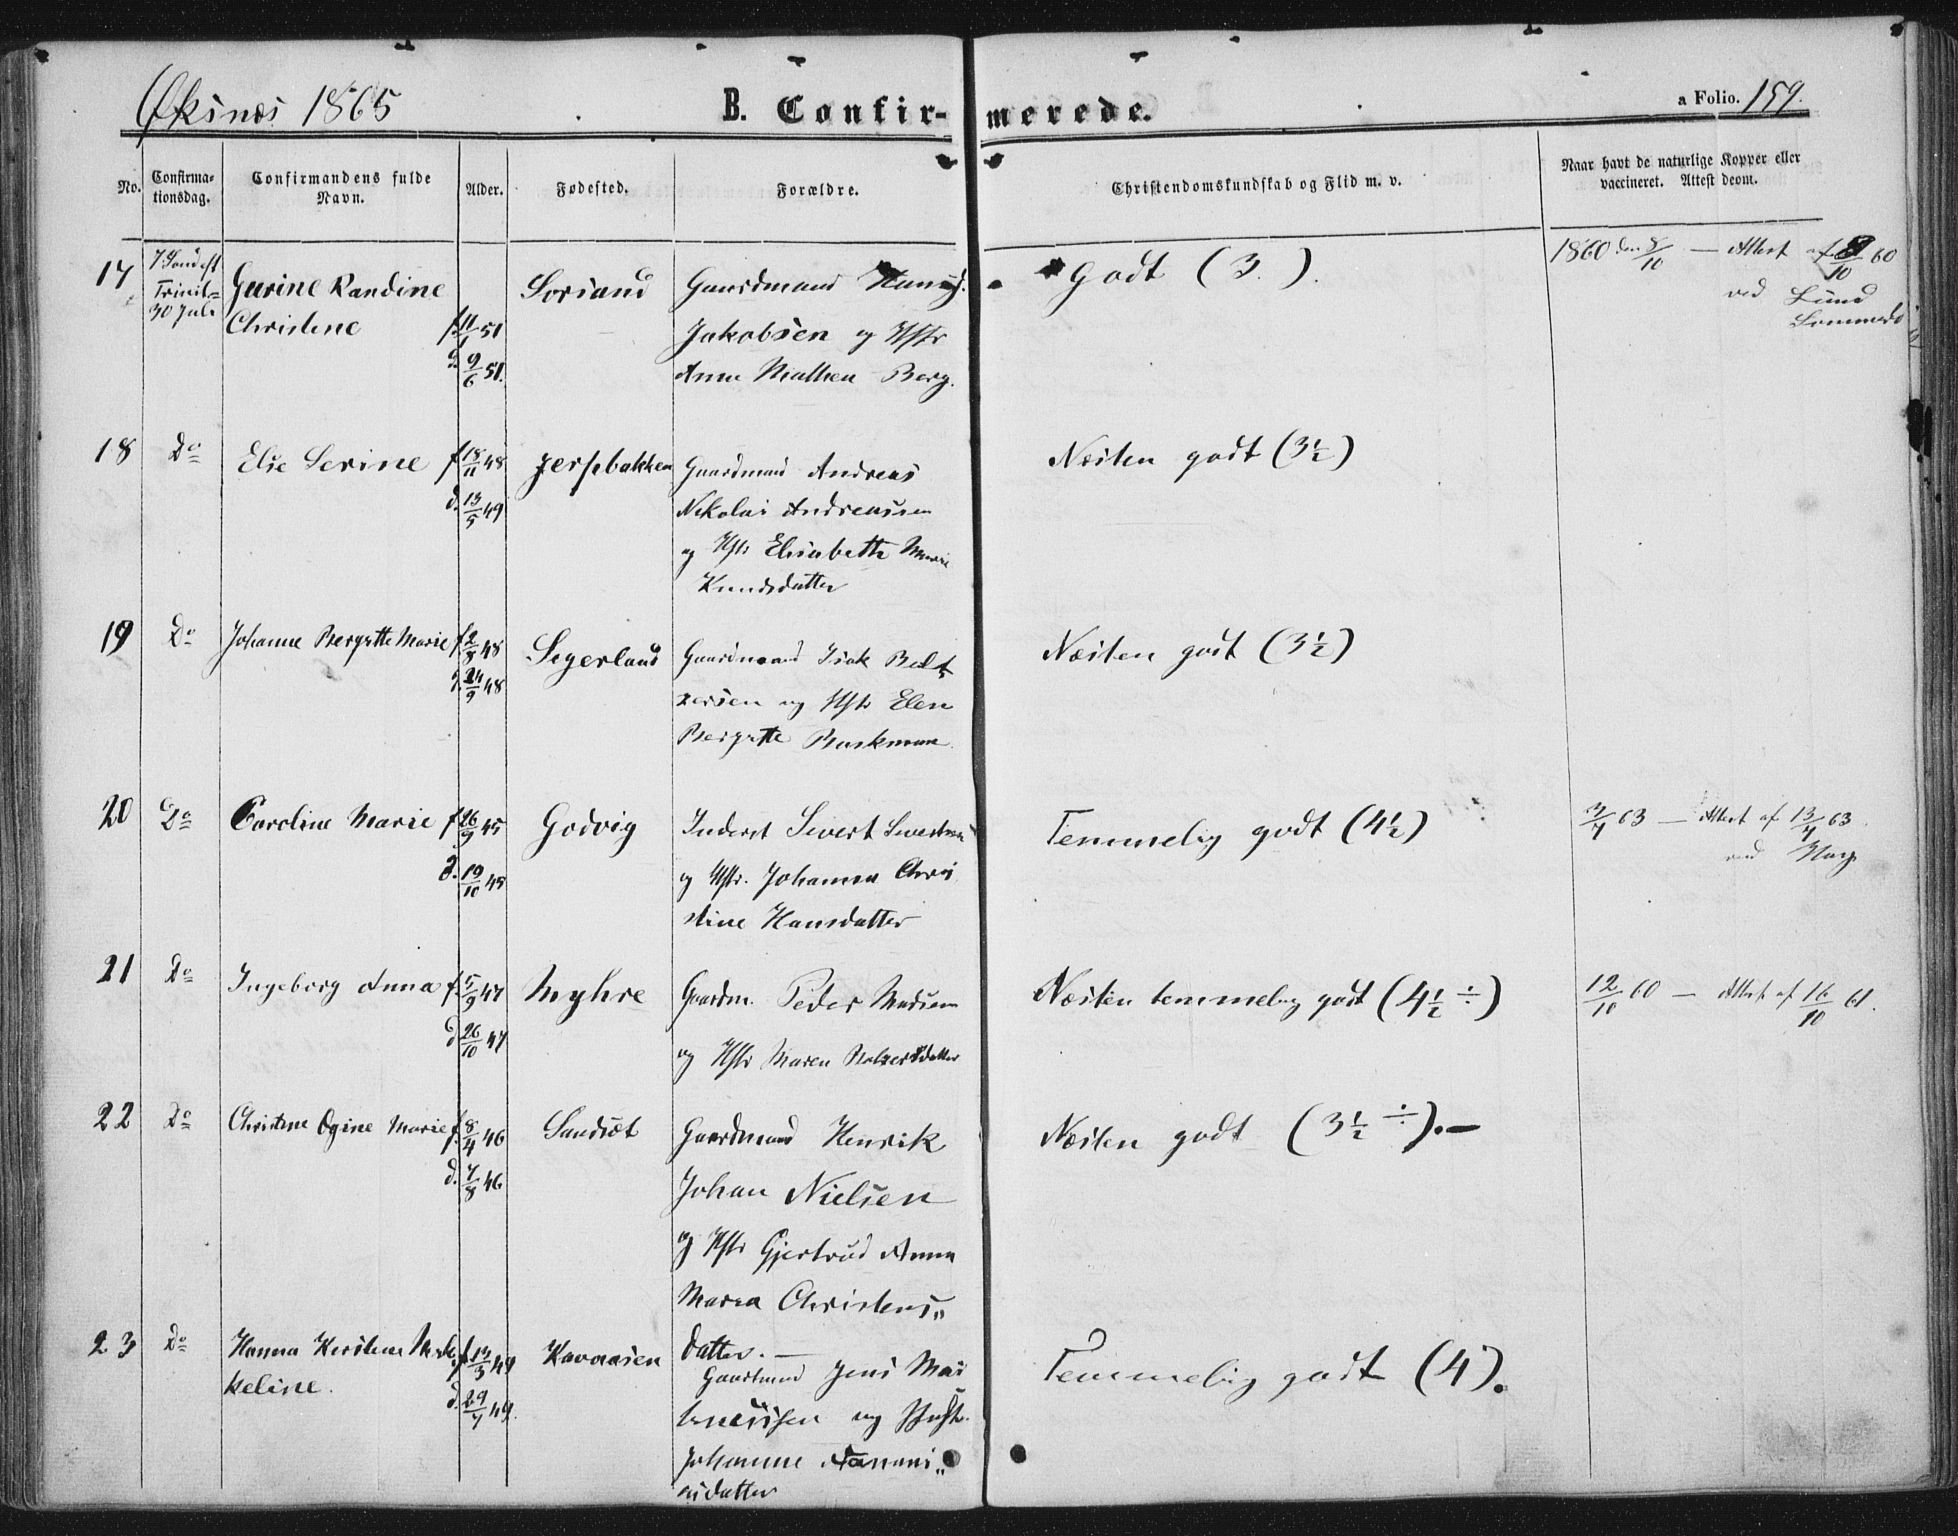 Øksnæs 1865
B. Confirmerede.
a Folio. 159.
No.
Confirmationsdag.
Confirmandens fulde Navn.
Alder.
Fødested.
Forældre.
Christendomskundskab og Flid m. v.
Naar havt de naturlige Kopper eller vaccineret. Attest derom.
17
7 Sønd eft
Trinit=
30 Juli
Gurine Randine
Christine
f. 11/1 51
d. 9/6 51.
Sorsand
Gaardmand
Jakobsen og Hstr
Anne Mathea Berg.
Godt (3.).
1860 den 8/10 — Attest af 9/10 60
ved Lund
18
Do
Else Serine
f. 18/11 48
d. 13/5 49
Jerpbakken
Gaardmand Andreas
Nikolai Andreassen
og Hstr Elisabeth Marie
Knudsdatter
Næsten godt (3½)
19
Do
Johanne Bergitte Marie
f. 2/8 48
d. 24/9 48
Segerland
Gaardmand Isak Balt
zersen og Hstr Elen
Bergitte
Næsten godt (3½)
20
Do
Caroline Marie
f. 26/9 45
d. 19/10 45
Godvig
Inderst Sivert Sivertsen
og Hstr. Johanna Chris
tine Hansdatter
Temmelig godt (4½)
3/7 63 — Attest af 13/7 63.
ved
21
Do
Ingeborg Anna
f. 5/9 47
d. 26/10 47
Myhre
Gaardm. Peder Madsen
og Hstr Maren Balzersdatter
Næsten temmelig godt (4½ ÷)
12/10 60 — Attest af 16/10 61.
22
Do
Christine Ogine Marie
f. 8/4 46
d. 7/8 46
Sandset
Gaardmand Henrik
Johan Nielsen
og Hstr Gjertrud Anna
Maria Christens„
datter. —
Næsten godt (3½ ÷). —
23
Do
Hanna Kirstine
keline.
f. 13/3 49
d. 29/7 49.
Kavaasen
Gaardmand Jens Mar
kussen og Hustr.
Johanne
asdatter
Temmelig godt (4).